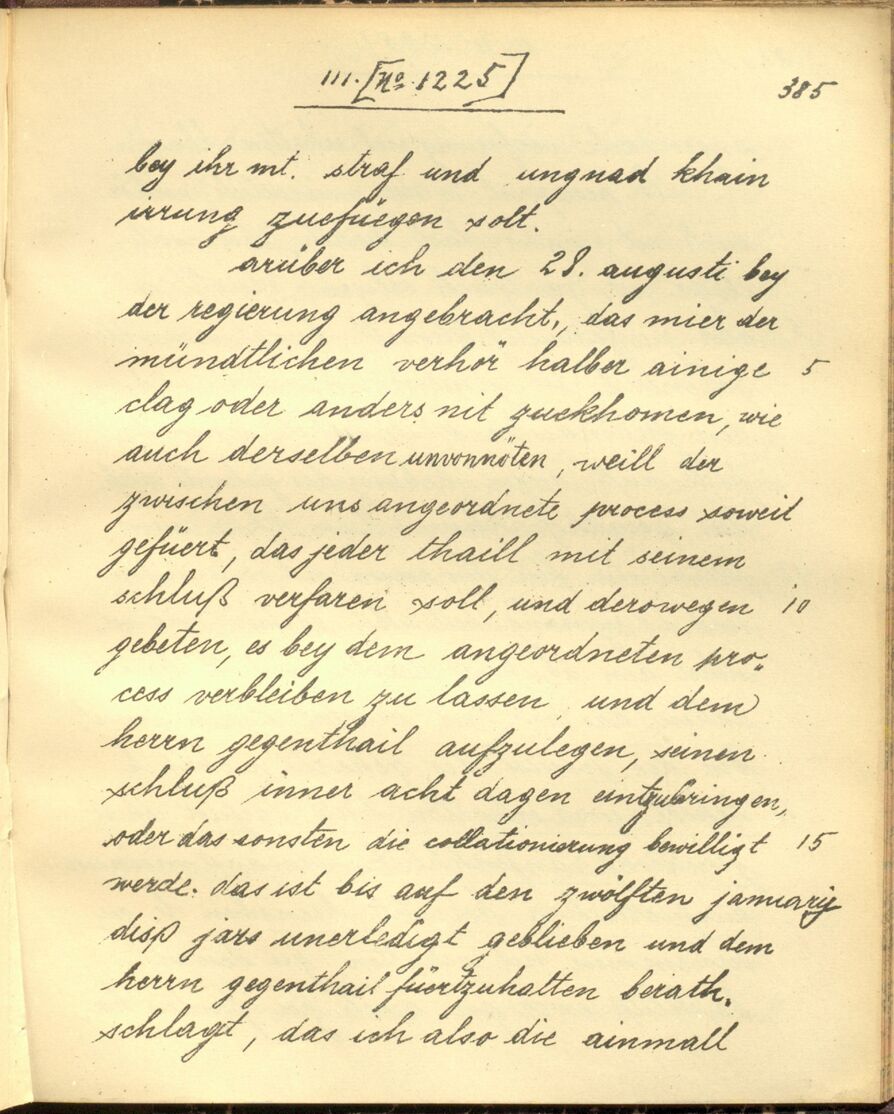 III. [No. 1225]
385
bey ihr mt. straf und ungnad khain
irrung zuefüegen solt.
arüber ich den 28. augusti bey
der regierung angebracht, das mier der
mündtlichen verhör halber ainige 5
clag oder anders nit zuekhomen, wie
auch derselben unvonnöten, weill der
zwischen uns angeordnete process soweit
gefüert, das jeder thaill mit seinem
schluß verfaren soll, und derowegen 10
gebeten, es bey dem angeordneten pro„
cess verbleiben zu lassen und dem
herrn gegenthail aufzulegen, seinen
schluß inner acht dagen eintzubringen,
oder das sonsten die collationierung bewilligt 15
werde. das ist bis auf den zwölften january
diß jars unerledigt geblieben und dem
herrn gegenthail füertzuhalten berath„
schlagt, das ich also die ainmall